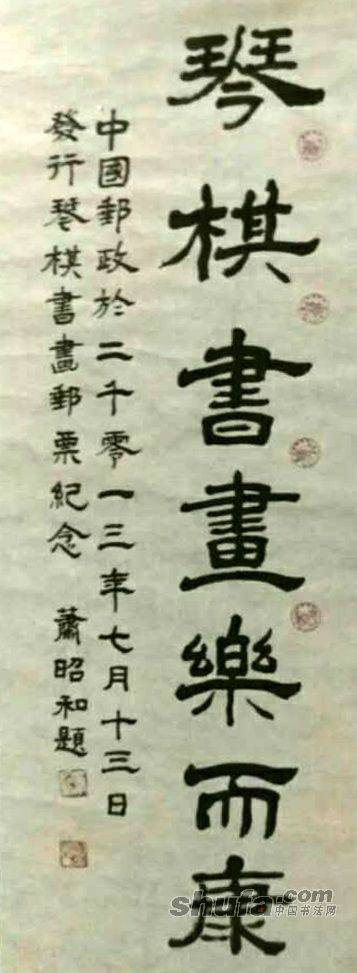 琴棋書畫樂而康
中國郵政於二千零一三年七月十三日
發行琴棋書畫郵票紀念 蕭昭和題
shufa.com
中国书法网